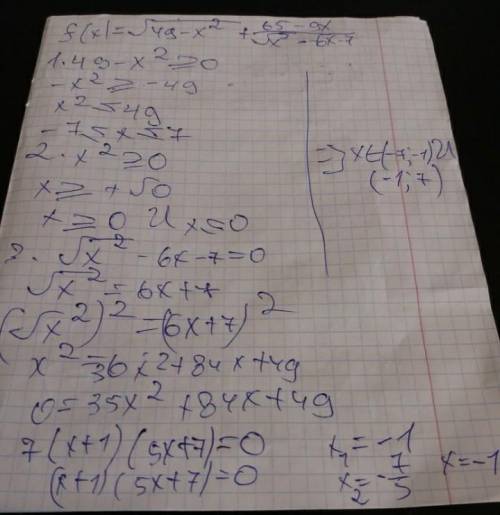 f(x)=√49-x² + 65-9x/√x² - 6x-7
1. 49-x²≥0
-x²≥-49
x²≤49
-7≤x≤7
2. x²≥0
x≥+√0
x≥0 U x≤0
3. √x² -6x-7=0
√x² = 6x+7
(√x²)² = (6x+7)²
x² = 36x²+84x+49
0=35x²+84x+49
7(x+1)(5x+7)=0
(x+1)(5x+7)=0
x₁=-1
x₂=-7/5
x=-1
=> x∈(-7;-1)U
(-1;7)